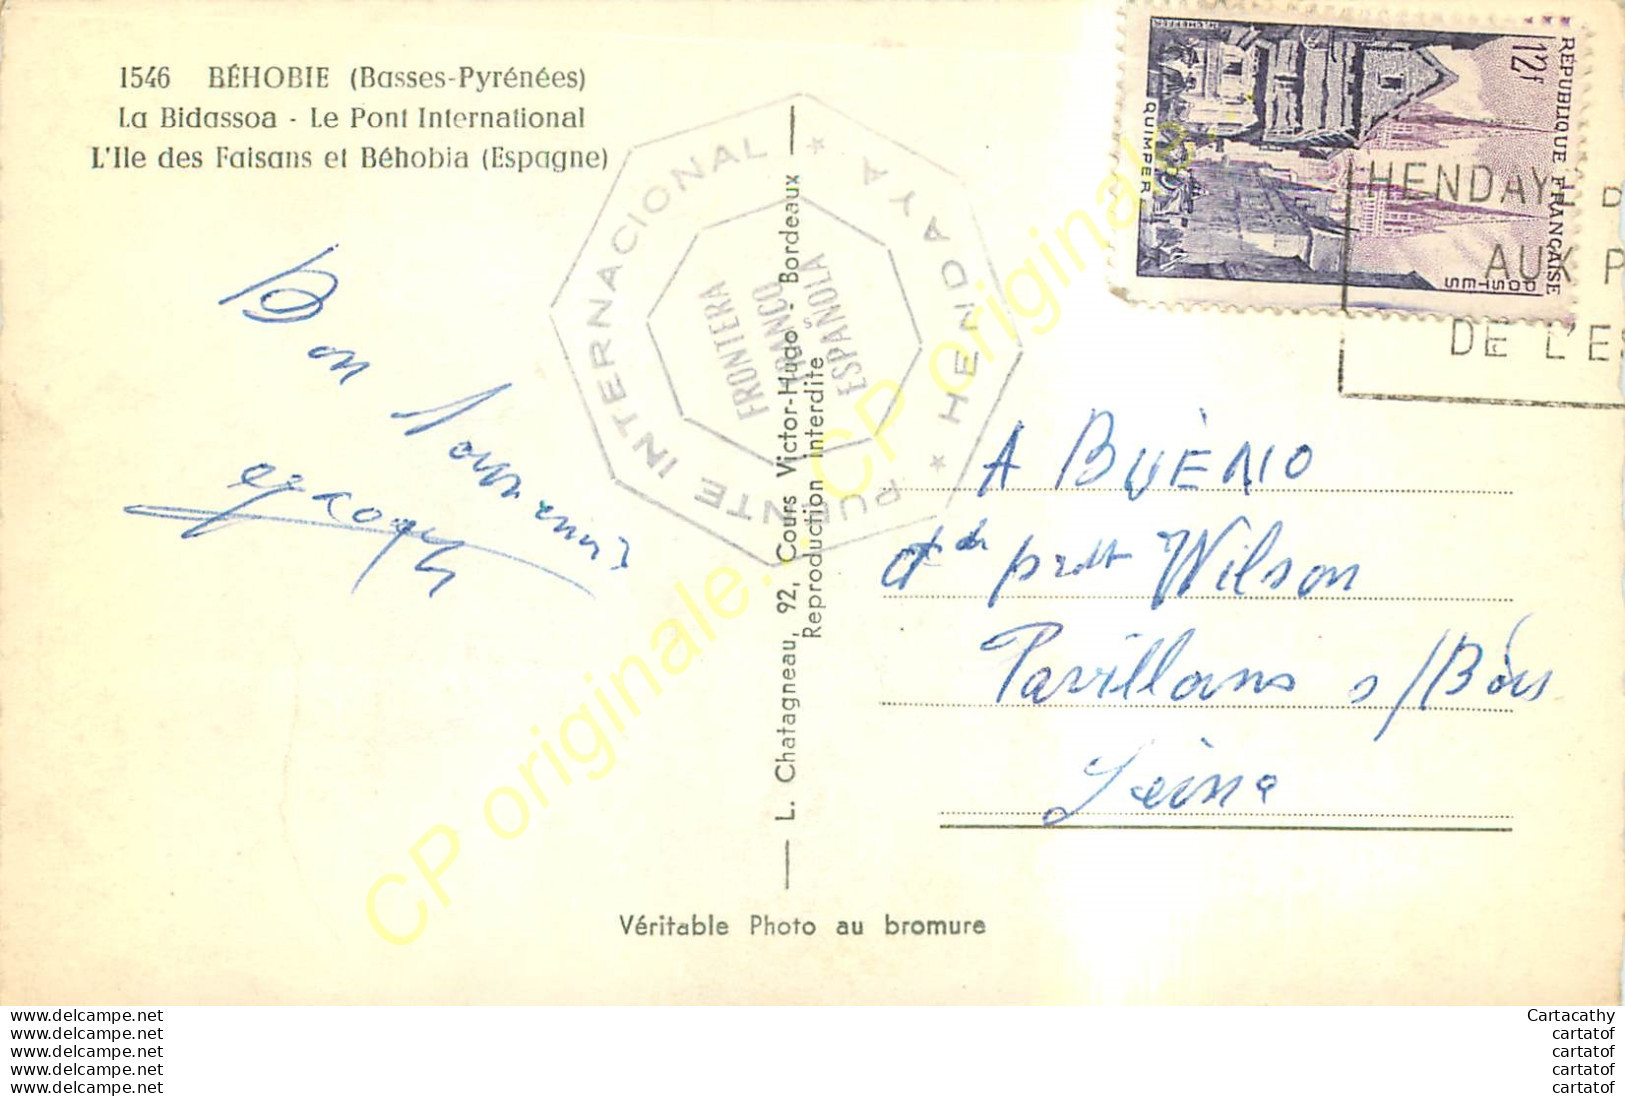 1546 BÉHOBIE (Basses-Pyrénées)
La Bidassoa - Le Pont International
L'Ile des Faisans et Béhobia (Espagne)
Bon souvenir
Jacques
PUENTE INTERNACIONAL * HENDAYA *
FRONTERA
FRANCO
ESPAÑOLA
L. Chatagneau, 92, Cours Victor-Hugo - Bordeaux
Reproduction Interdite
Véritable Photo au bromure
RÉPUBLIQUE FRANÇAISE
12f
POSTES
QUIMPER
HENDAYE
AUX P
DE L'ES
A BUÈNO
Prdt Wilson
Pavillons s/Bois
Seine
CP originale. CP originale.
www.delcampe.net
www.delcampe.net
www.delcampe.net
www.delcampe.net
www.delcampe.net
Cartacathy
cartatof
cartatof
cartatof
cartatof